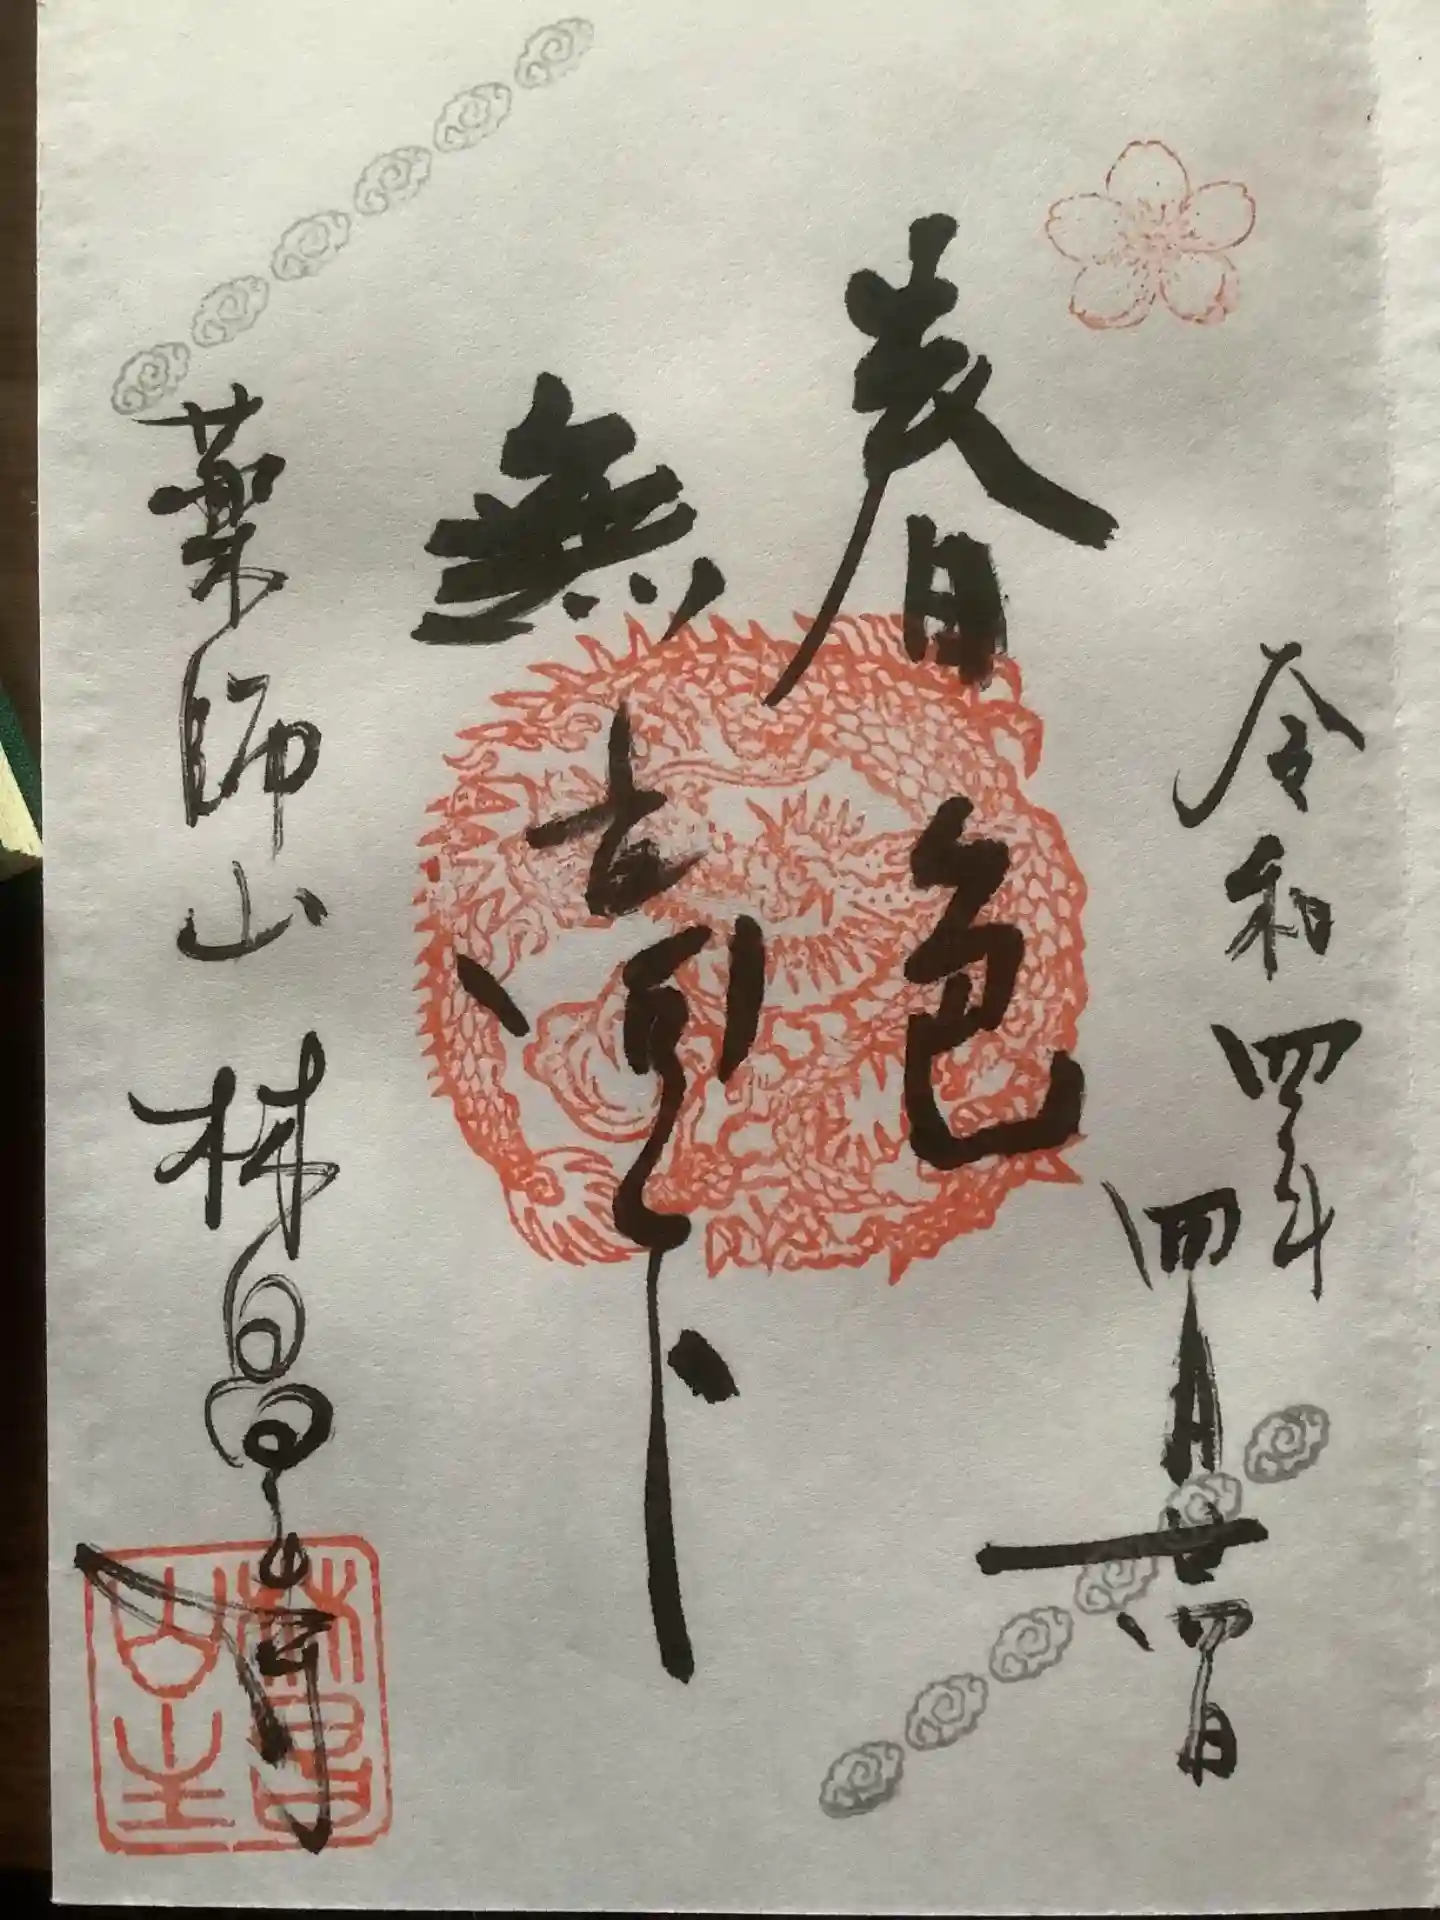 令和四年
四月廿四日
春色
無高下
薬師山
林昌寺